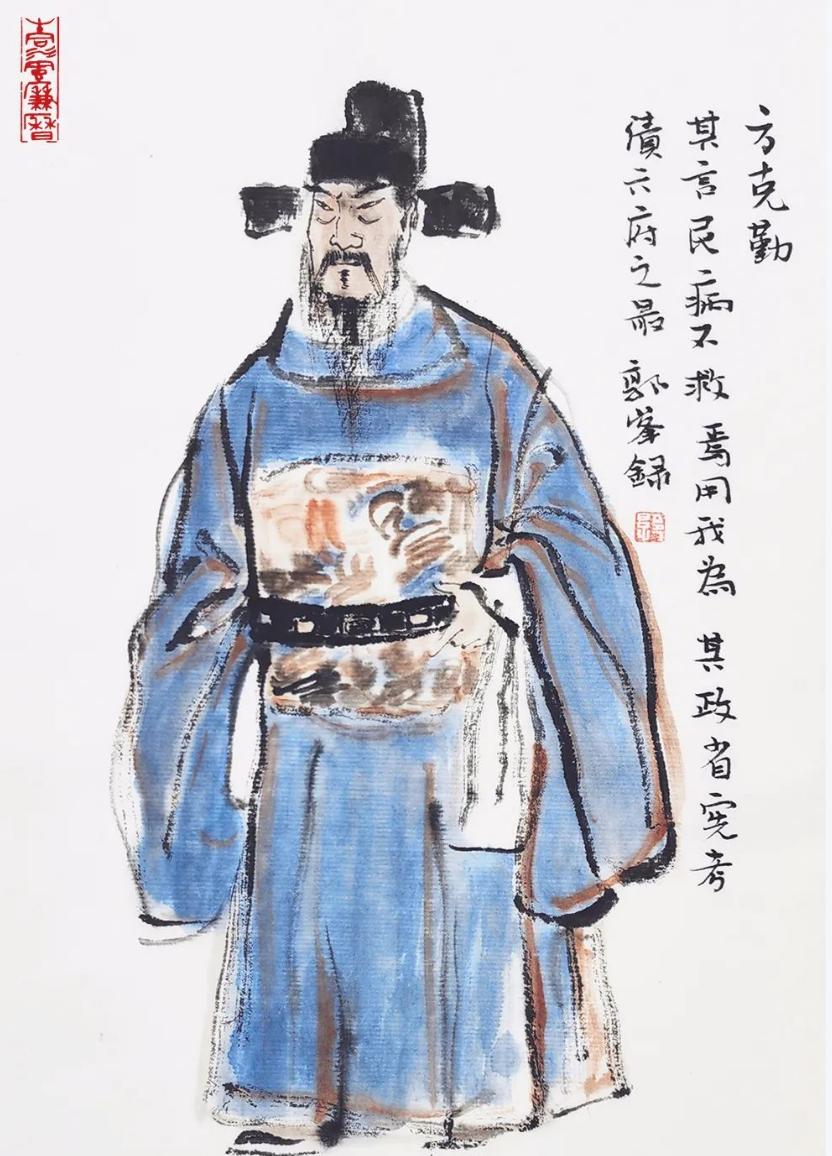 方克勤
其言民病不救焉用我為 其政省宪考
債六府之最 郭峯録